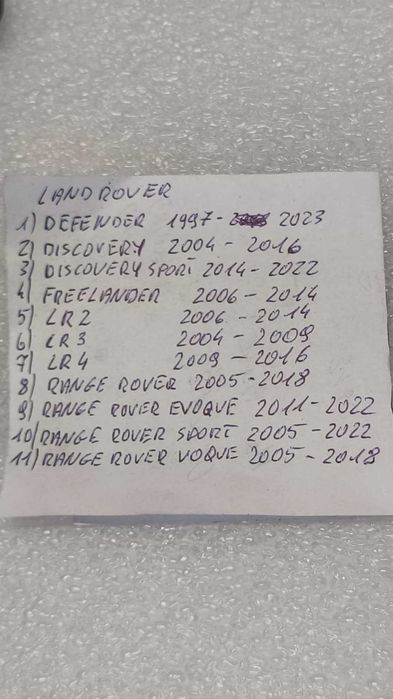 LAND ROVER
1) DEFENDER 1997 - 2023
2) DISCOVERY 2004 - 2016
3) DISCOVERY SPORT 2014 - 2022
4) FREELANDER 2006 - 2014
5) LR2 2006 - 2014
6) LR3 2004 - 2009
7) LR4 2009 - 2016
8) RANGE ROVER 2005 - 2018
9) RANGE ROVER EVOQUE 2011 - 2022
10) RANGE ROVER SPORT 2005 - 2022
11) RANGE ROVER VOQUE 2005 - 2018